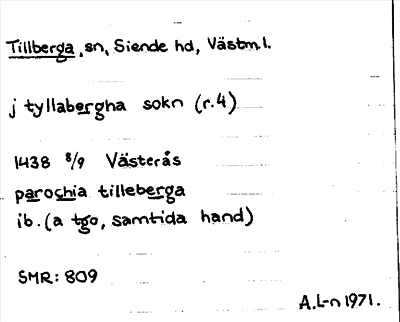 Tillberga, sn, Siende hd, Västml.
j tyllabergha sokn (r.4)
1438 8/9 Västerås
parochia tilleberga
ib. (a tgo, samtida hand)
SMR: 809
A.L-n 1971.